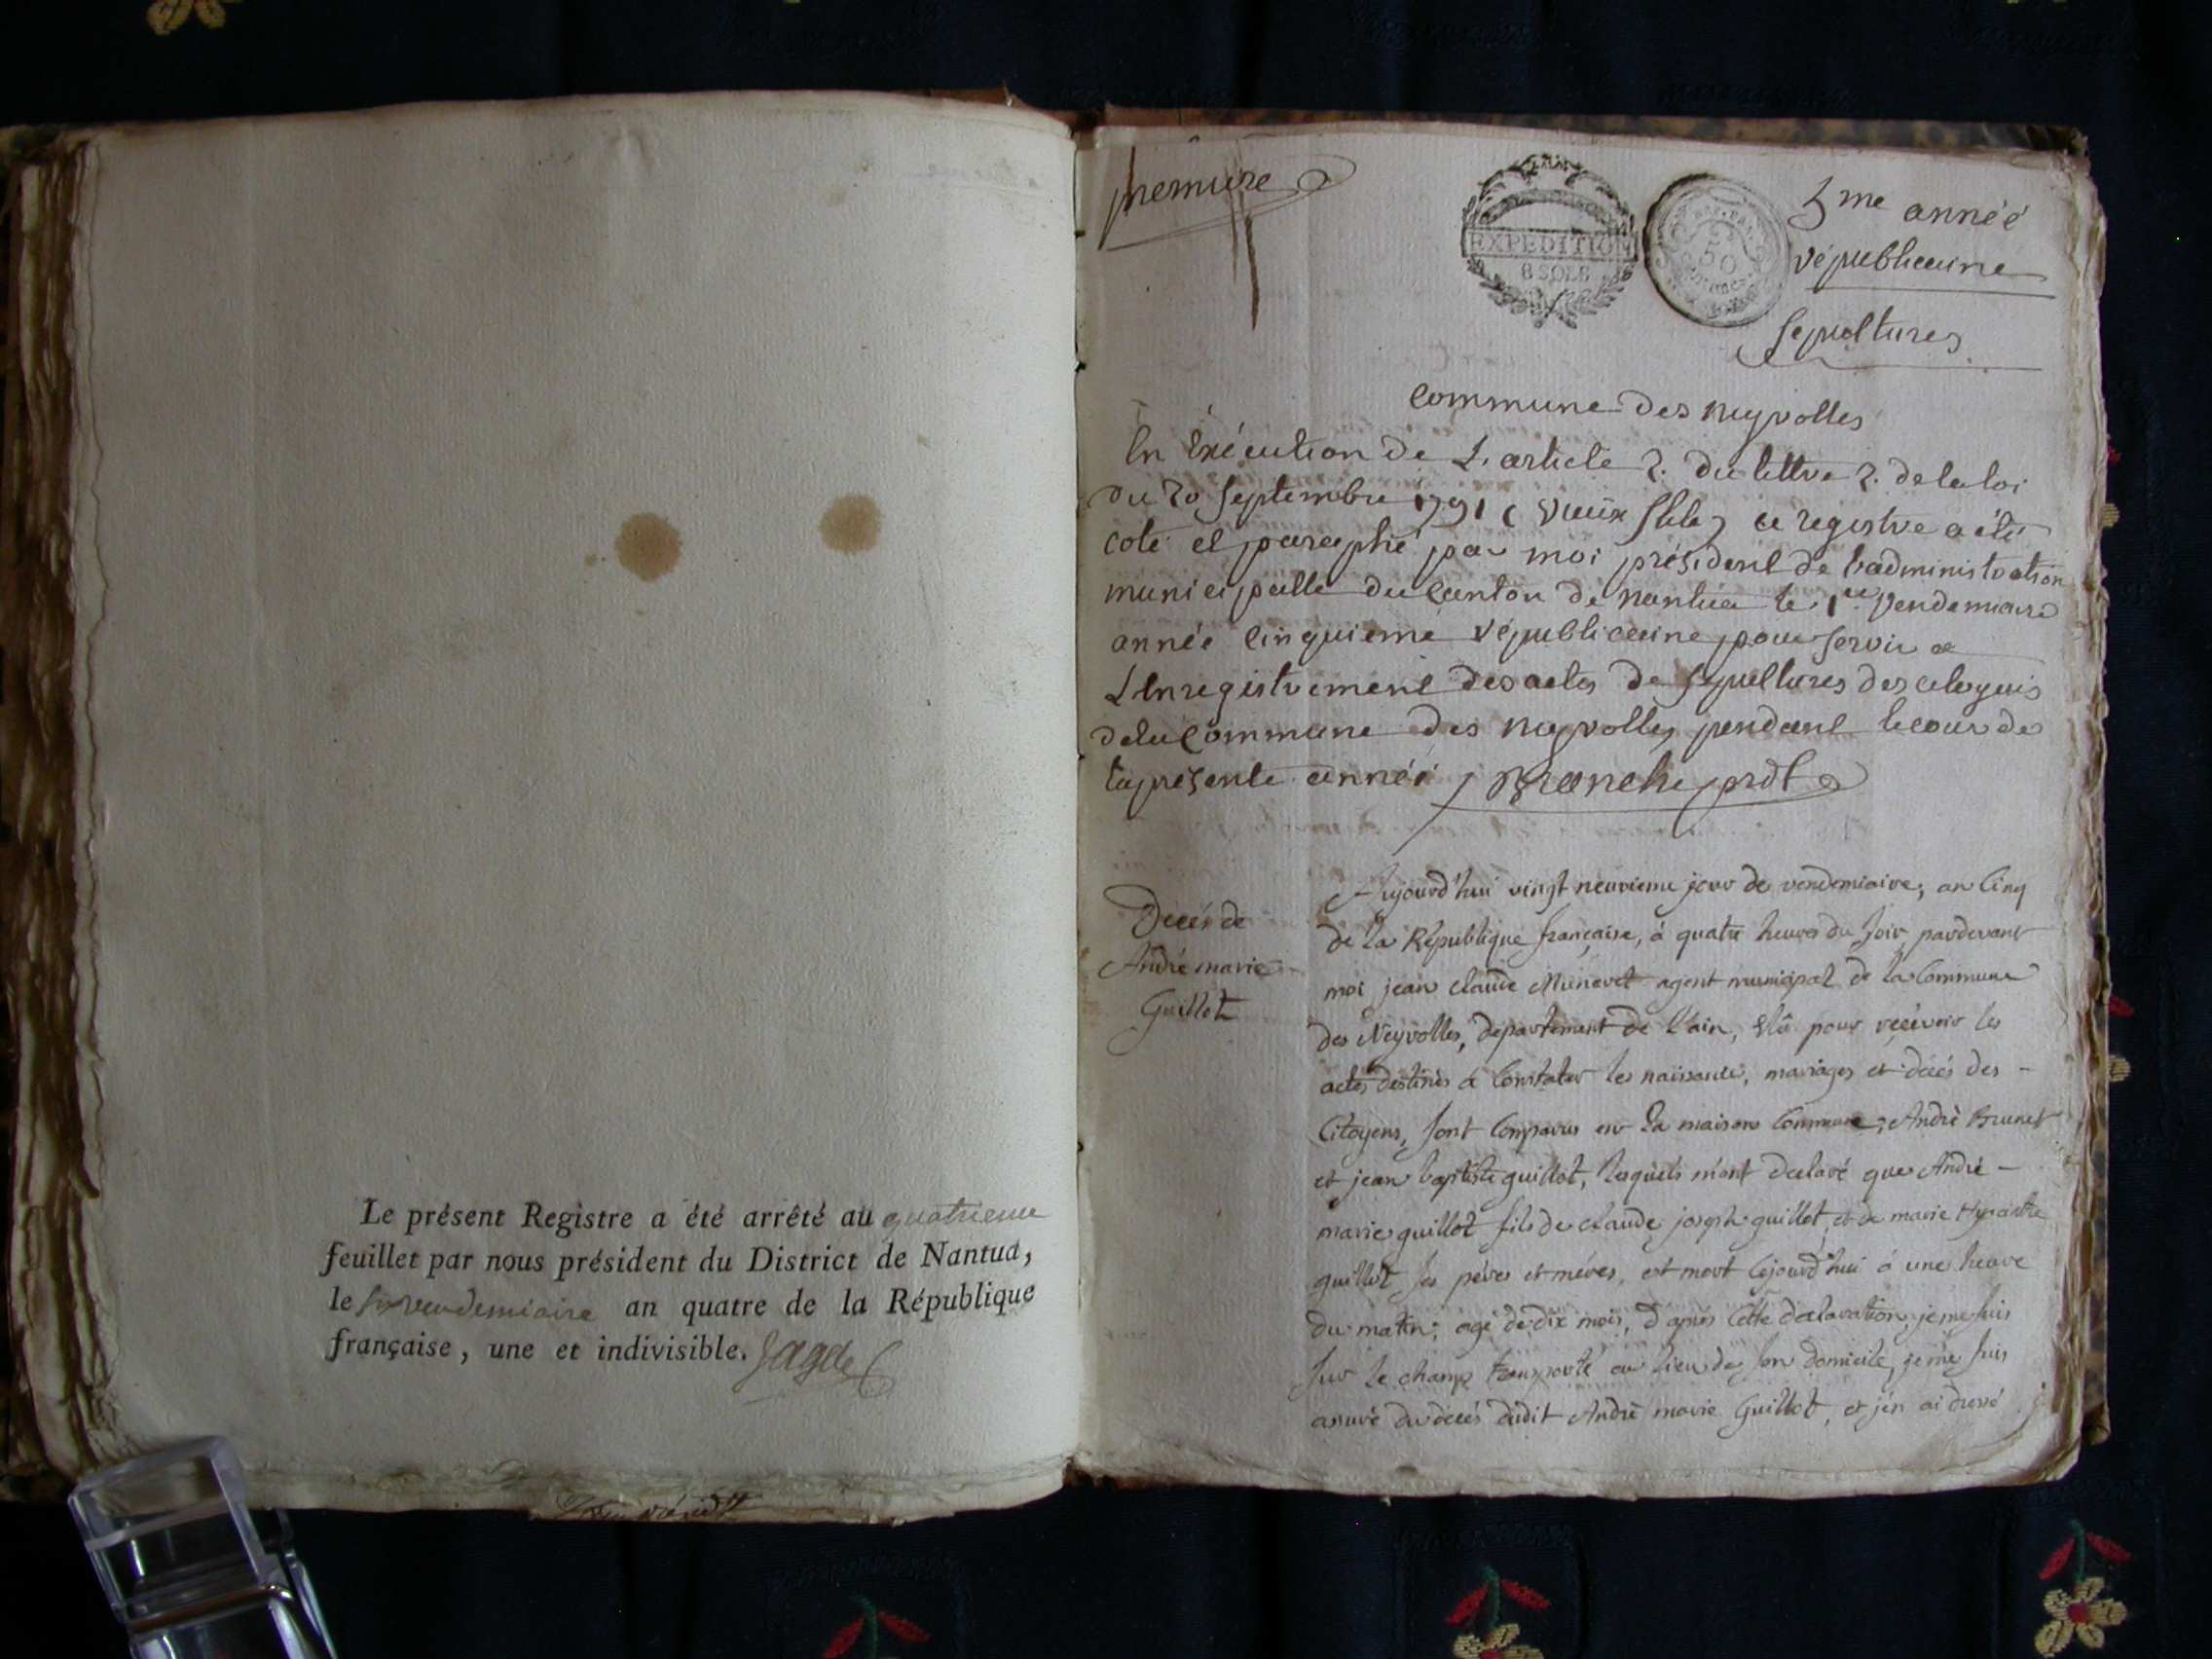 Le présent Registre a été arrêté au quatrieme
feuillet par nous président du District de Nantua,
le vendemiaire an quatre de la République
française, une et indivisible. Jagot
premiere
EXPEDITION
8 SOLS
50
5me année
républicaine
Sepultures
Commune des neyvolles
En Exécution de L'article 2. du tittre 2. de la loi
du 20 Septembre 1791 (vieux stile) ce registre a été
coté et paraphé par moi président de l'administration
municipalle du Canton de nantua le 1er vendemiaire
année Cinquieme républicaine pour servir a
L'Enregistrement des actes de Sepultures des citoyens
de la Commune des neyvolles pendant le cour de
la présente année prdt
Décés de
André marie
Guillot
Aujourd'hui vingt neuvieme jour de vendemiaire, an Cinq
de la République française, à quatre heures du soir, pardevant
moi jean claude agent municipal de la Commune
des Neyvolles, département de l'ain, élû pour recevoir les
actes destinés à Constater les naissances, mariages et décés des -
Citoyens, sont Comparus en la maison Commune, André Brunet
et jean baptiste guillot, lesquels m'ont declaré que André -
marie guillot fils de claude joseph guillot, et de marie
guillot ses péres et méres, est mort cejourd'hui à une heure
du matin, agé de dix mois, d'aprés Cette declaration, je me suis
sur le champ transporté au lieu de son domicile, je me suis
assuré du décés dudit André marie Guillot, et j'en ai dressé